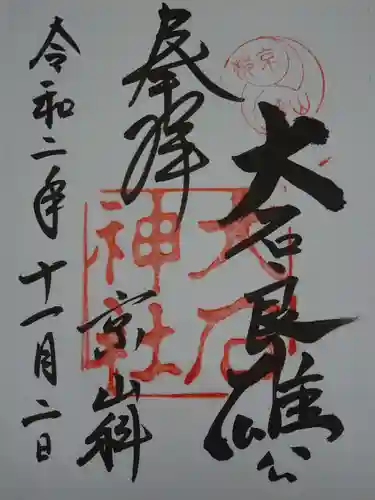 大石良雄公
奉拝
京 山科
令和二年十一月二日
大石
神社